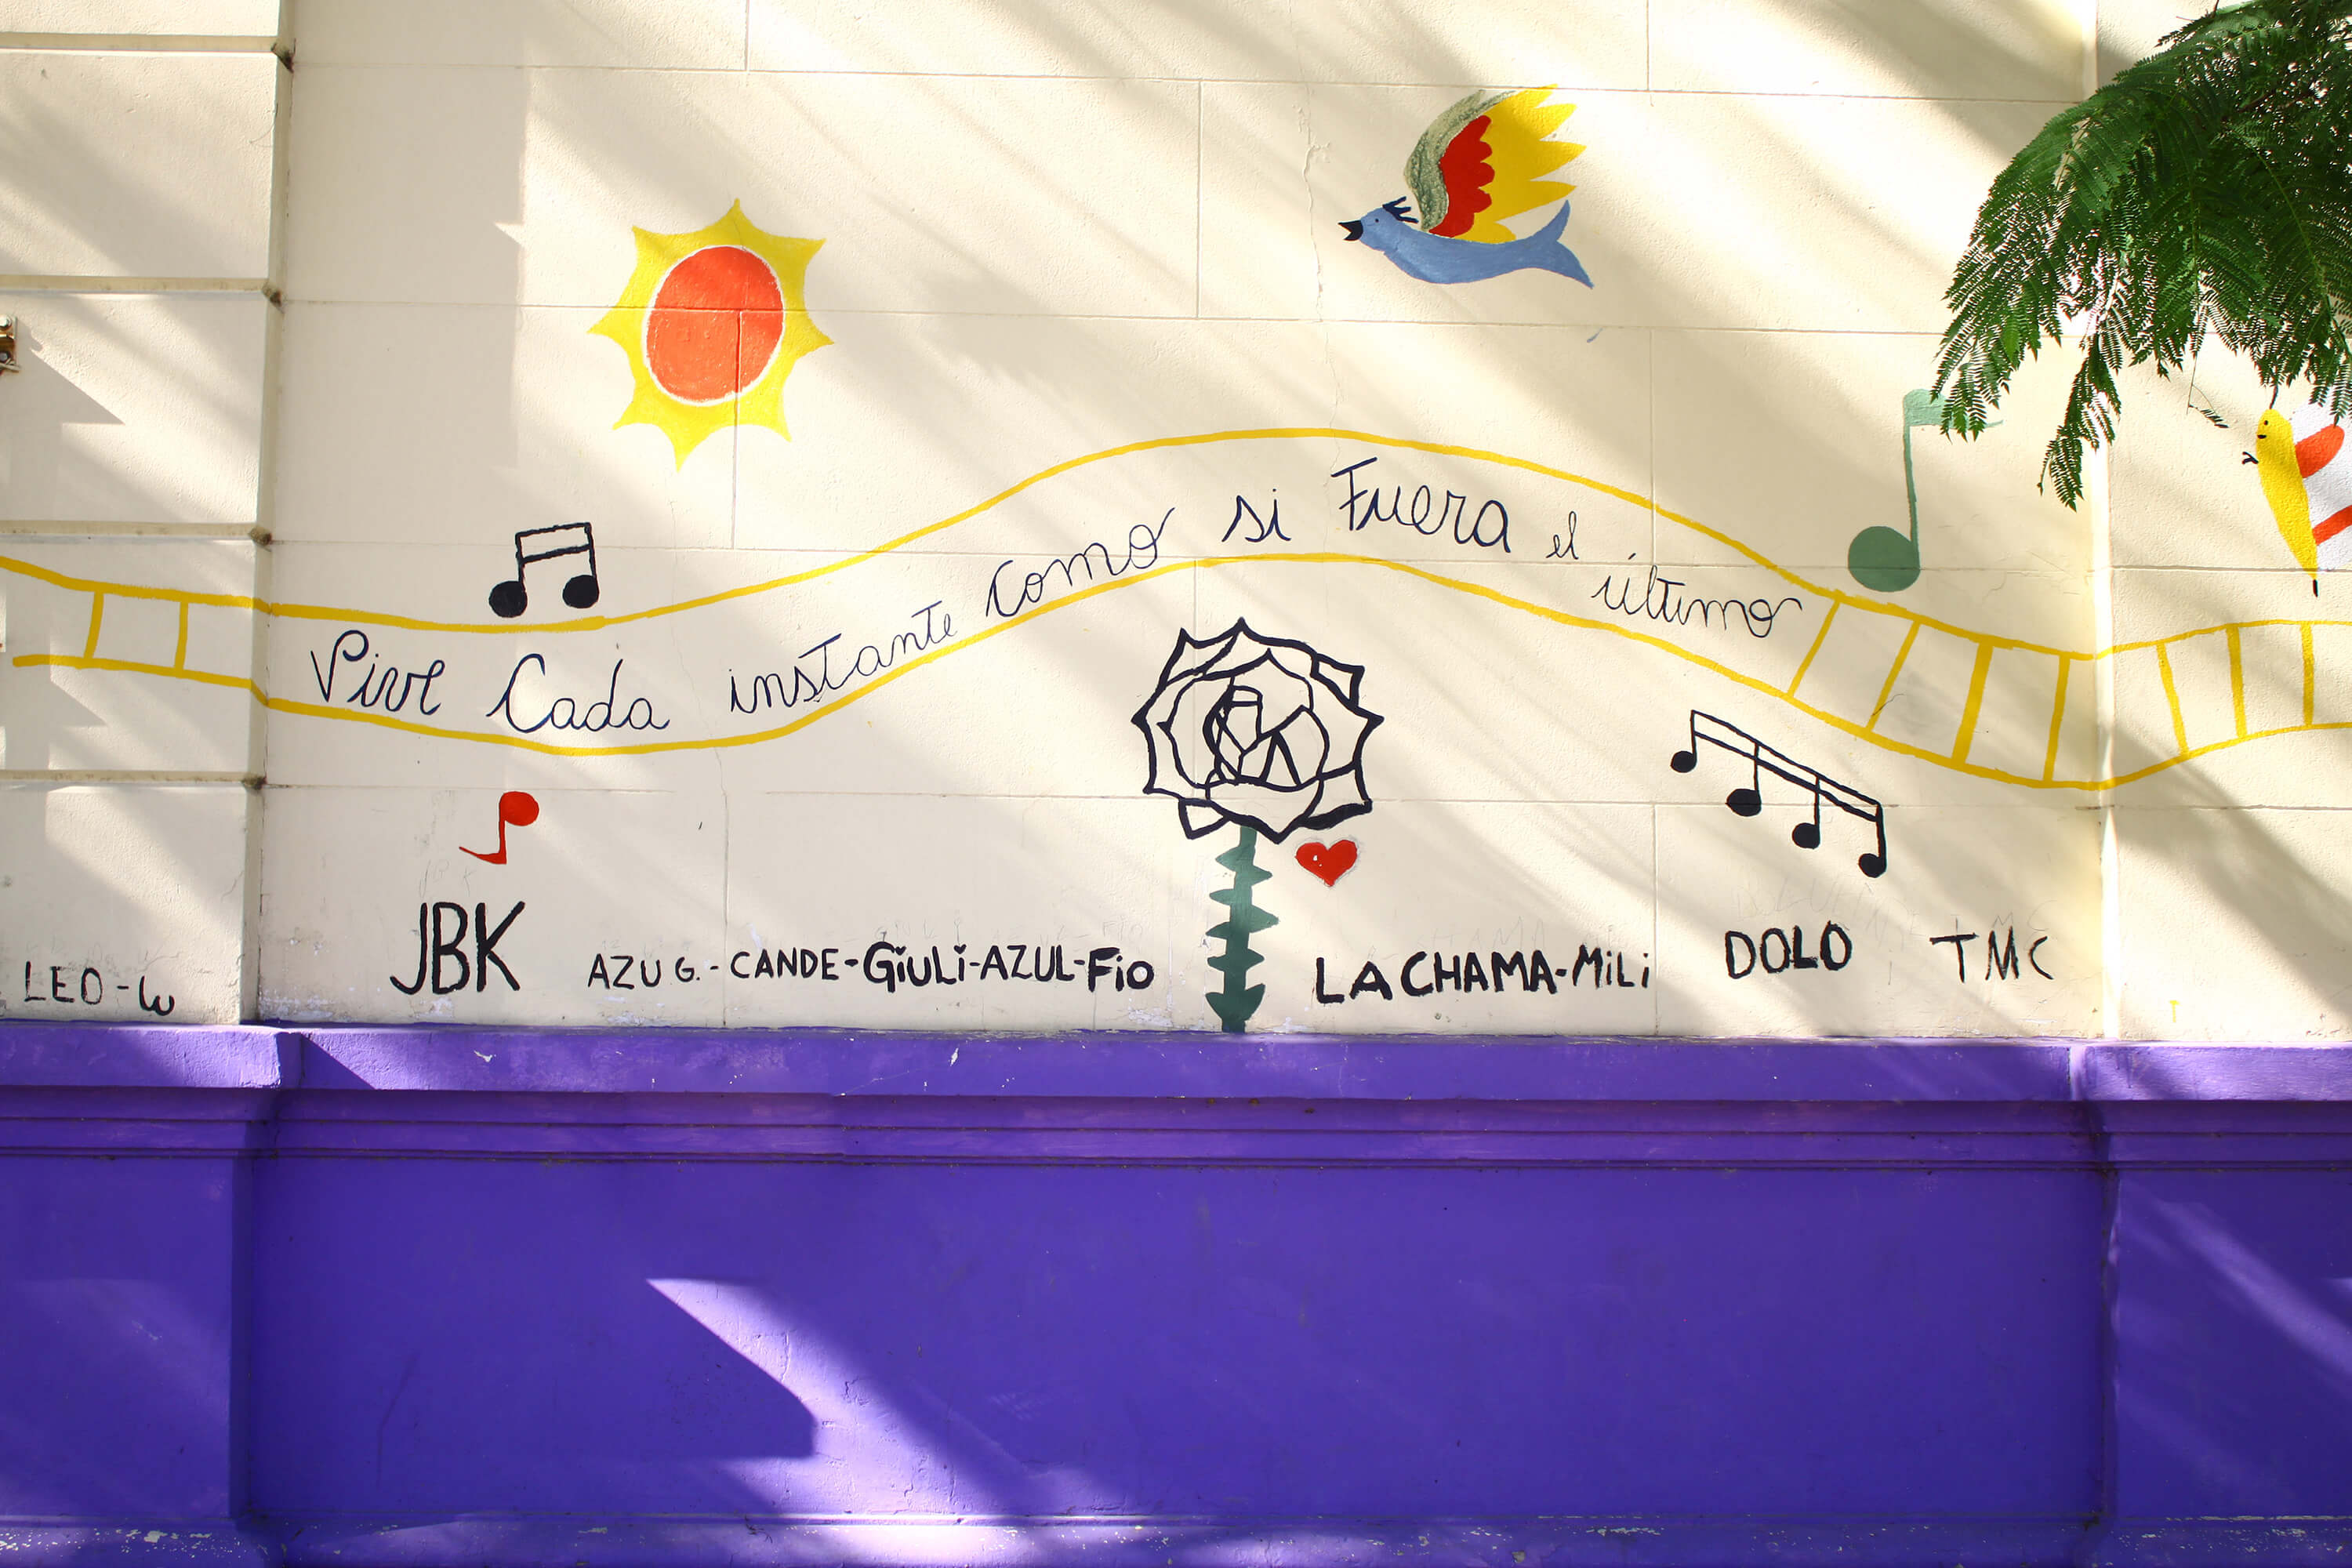 Vive Cada instante como si Fuera el último
LEO - W
JBK
AZU G. - CANDE - GiULi - AZUL - Fio
LA CHAMA - MiLi
DOLO
TMC